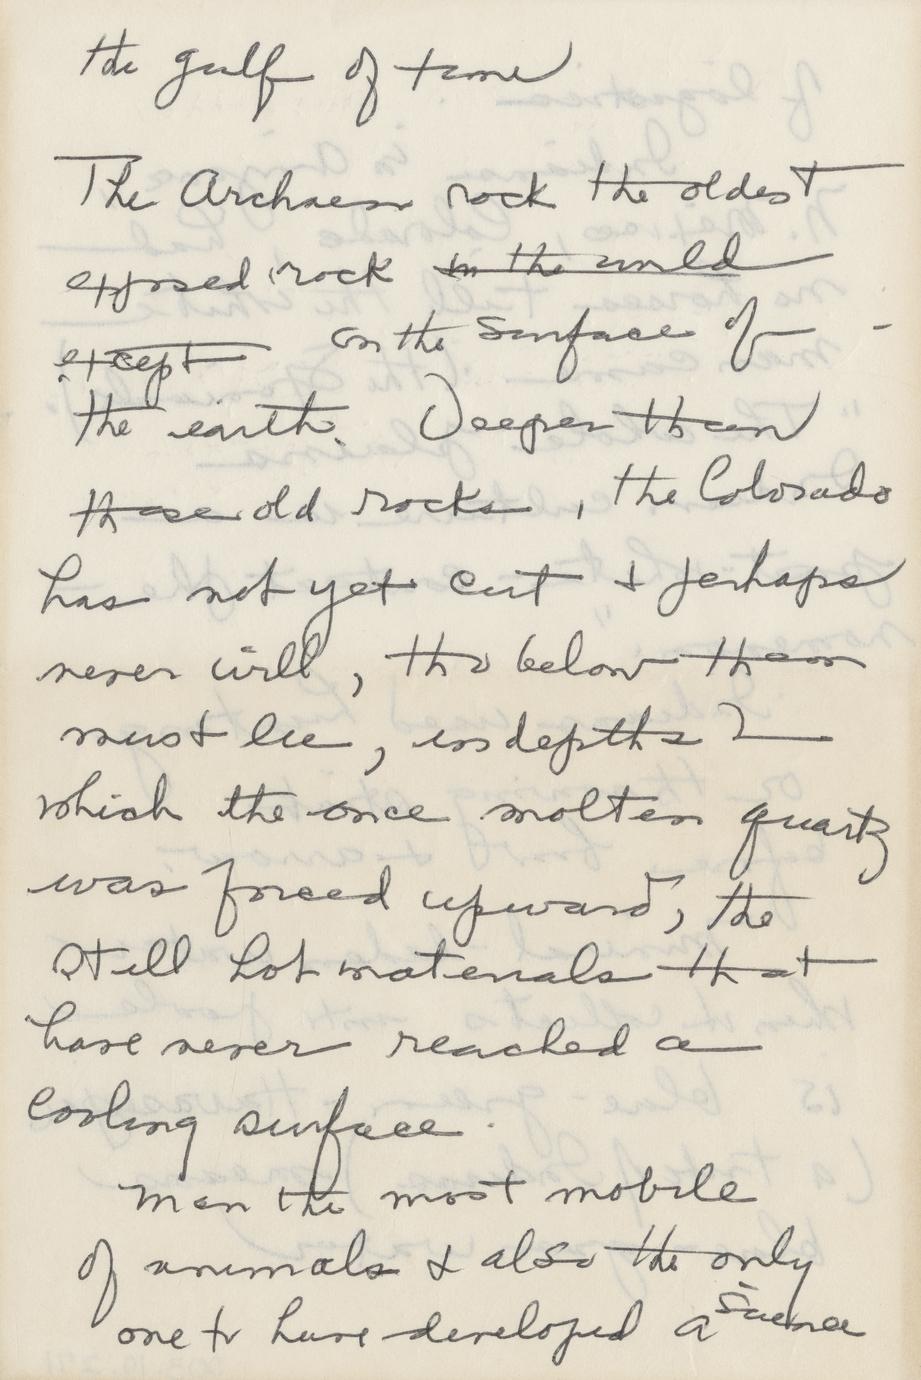 the gulf of time
The Archaen rock the oldest
exposed rock in the world
except on the surface of -
the earth. Deeper than
these old rocks, the Colorado
has not yet cut & perhaps
never will, tho below them
must lie, in depths
which the once molten quartz
was forced upward, the
still hot materials that
have never reached a
cooling surface.
Man the most mobile
of animals & also the only
one to have developed a science